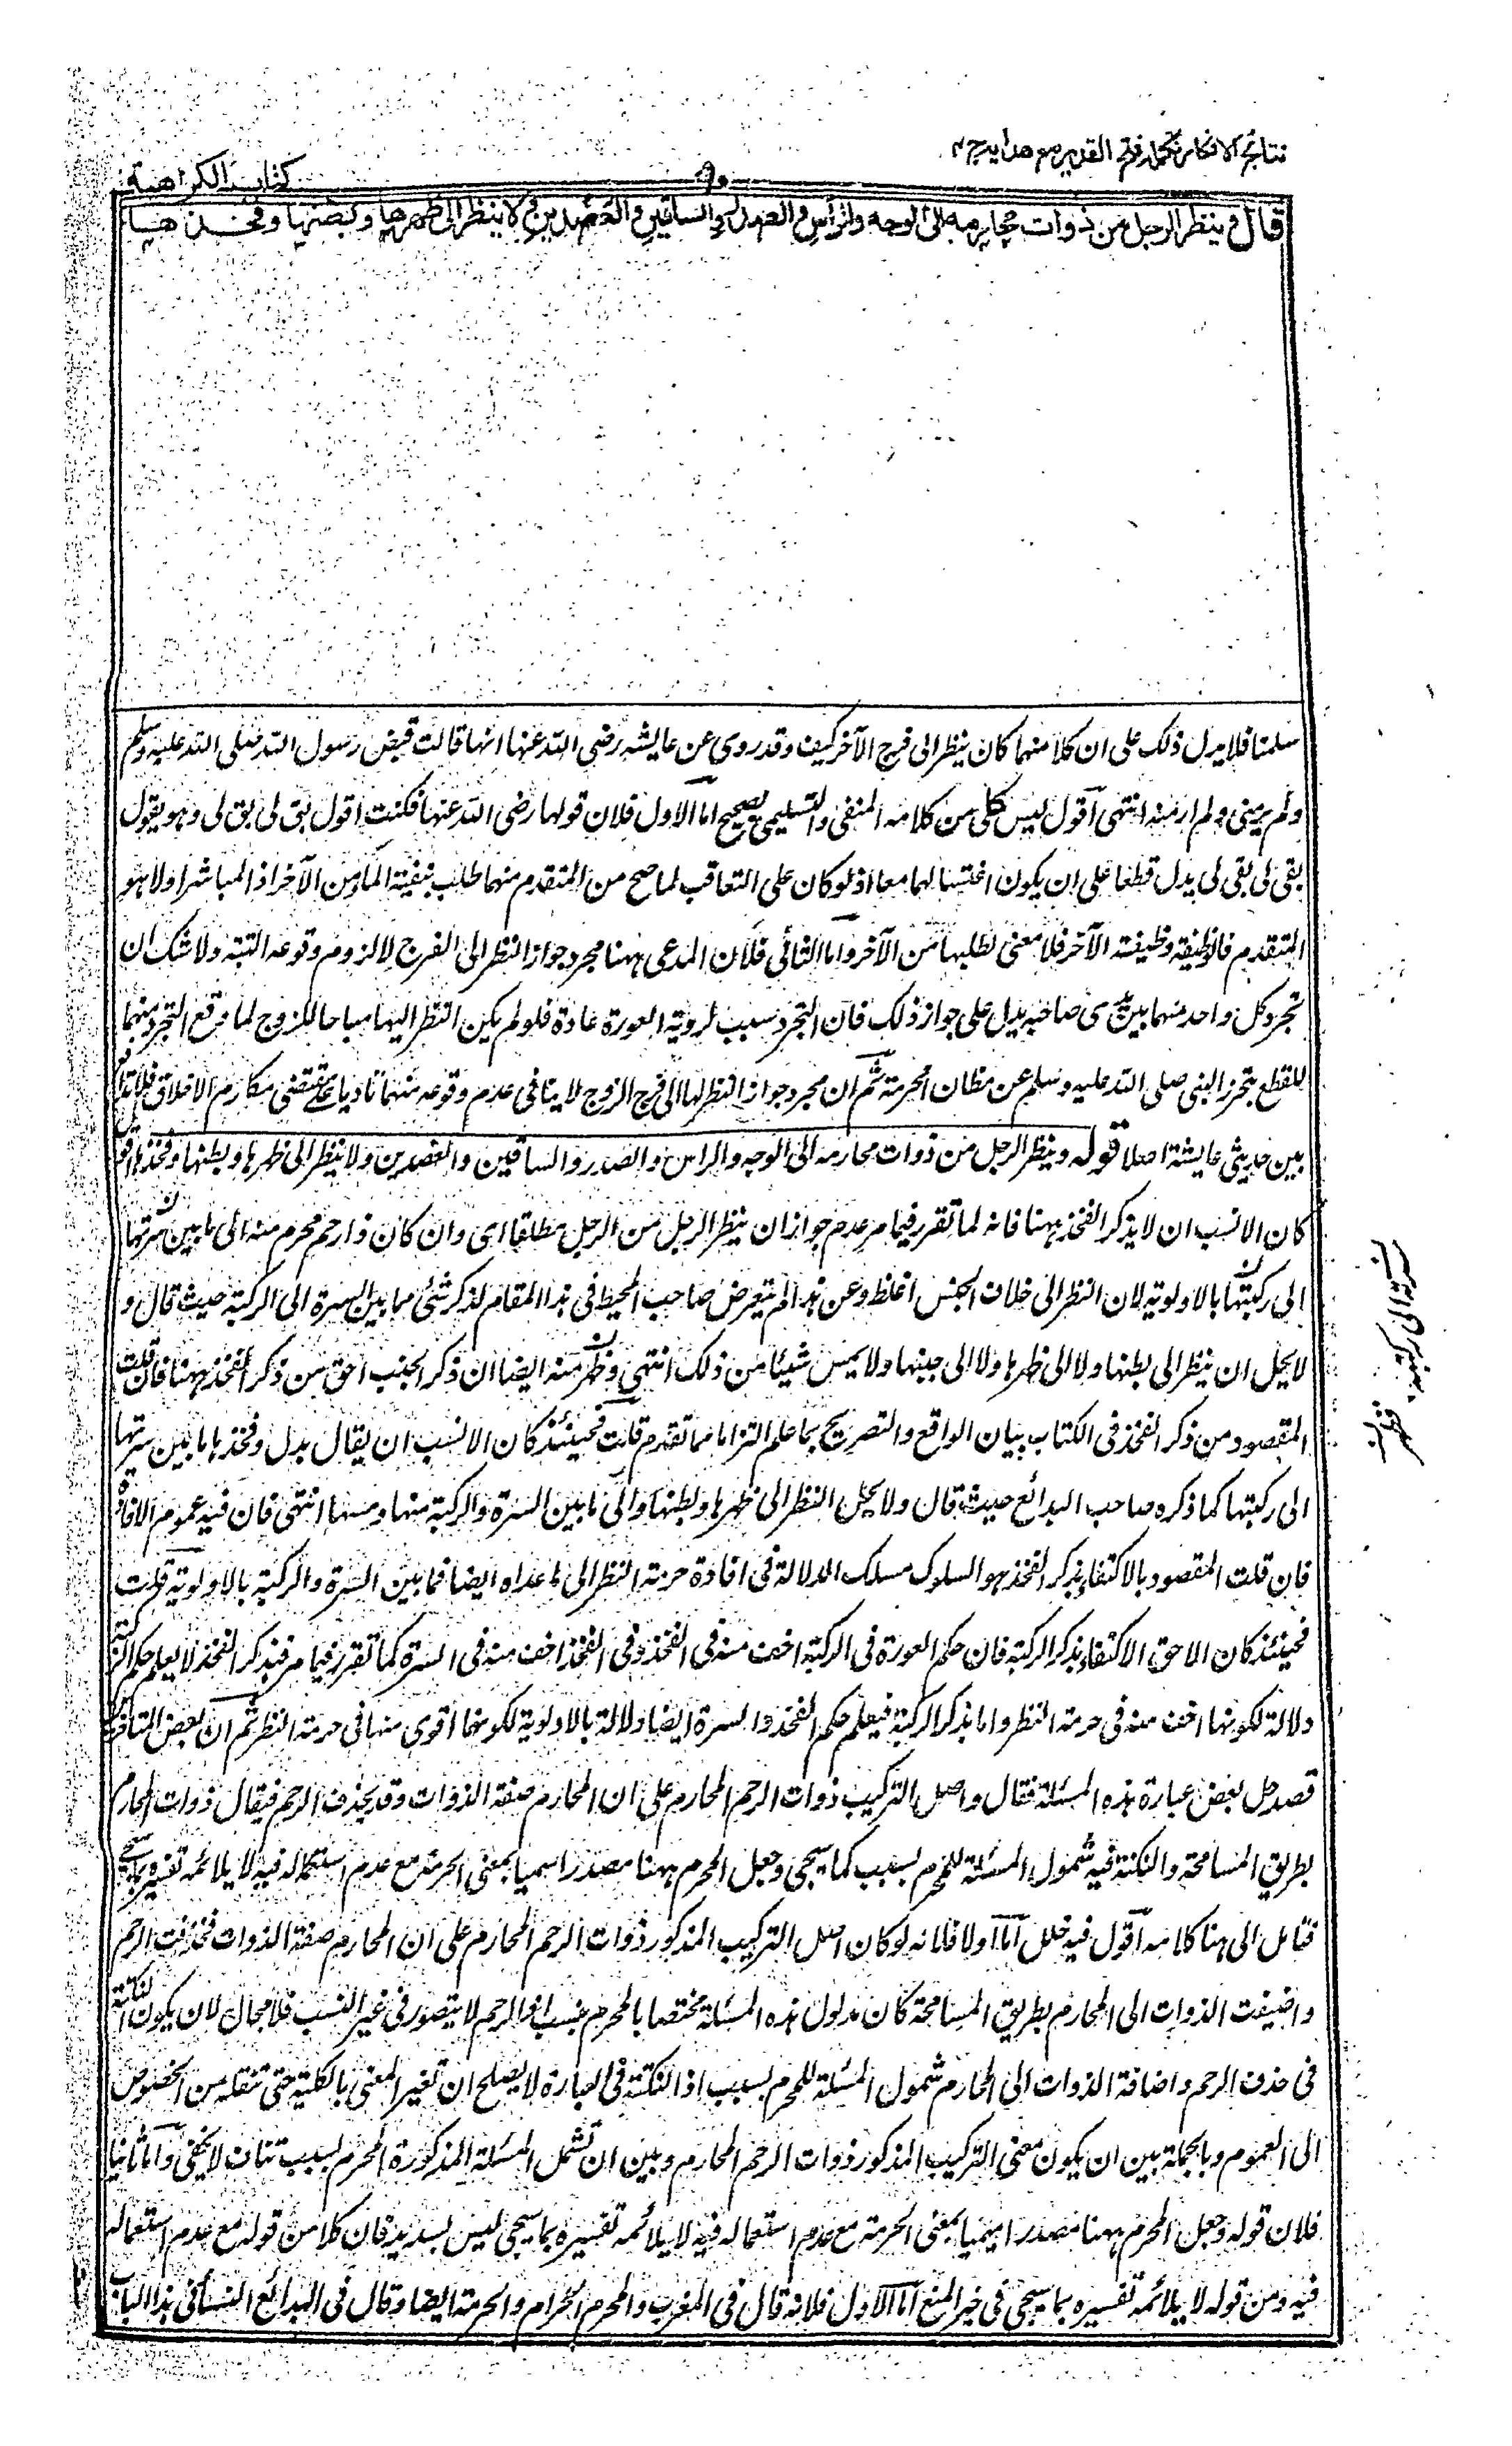 نتائج الافكار تكملہ فتح القدیر مع هدایہ ج ۴
۹۰
كتاب الكراهية
قال و ینظر الرجل من ذوات محارمه الى الوجه والرأس و الصدر و الساقين و العضدین و لا ینظر الى ظهرها و بطنها و فخذها
سلمنا فلا يدل ذلك على ان كلا منهما كان ينظر الى فرج الآخر كيف وقد روى عن عايشة رضى الله عنها انها قالت قبض رسول الله صلى الله عليه وسلم
ولم يرمنى ولم ار منه انتهى اقول ليس كل من كلامه المنفى والتسليمى بصحيح اما الاول فلان قولها رضى الله عنها فكنت اقول بق لى بق لى وهو يقول
بقى لى بقى لى يدل قطعا على ان يكون اغتسالهما معا اذ لو كان على التعاقب لما صح من المتقدم منهما طلب تبقية الماء من الآخر اذ المباشر اولا هو
المتقدم فالوظيفة وظيفته الآخر فلا معنى لطلبها من الآخر واما الثانى فلان المدعى ههنا مجرد جواز النظر الى الفرج لا لزوم وقوعه البتة ولا شك ان
تجرد كل واحد منهما بين يدى صاحبه يدل على جواز ذلك فان التجرد سبب لروية العورة عادة فلو لم يكن النظر اليها مباحا للزوج لما وقع التجرد منهما
للقطع بتحرز النبى صلى الله عليه وسلم عن مظان الحرمة ثم ان مجرد جواز النظر لها الى فرج الزوج لا ينافى عدم وقوعه منهما تأدبا على مقتضى مكارم الاخلاق فلا تدافع
بين حديثى عايشة اصلا قوله وينظر الرجل من ذوات محارمه الى الوجه والراس والصدر والساقين والعضدين ولا ينظر الى ظهرها وبطنها وفخذها اقول
كان الانسب ان لا يذكر الفخذ ههنا فانه لما تقرر فيما مر عدم جواز ان ينظر الرجل من الرجل مطلقا اى وان كان ذا رحم محرم منه الى ما بين سرتها
الى ركبتها بالاولوية لان النظر الى خلاف الجنس اغلظ وعن هذا لم يتعرض صاحب المحيط فى هذا المقام لذكر شئ مما بين السرة الى الركبة حيث قال و
لا يحل ان ينظر الى بطنها ولا الى ظهرها ولا الى جبينها ولا يمس شيئا من ذلك انتهى وظهر منه ايضا ان ذكر الجنب احق من ذكر الفخذ ههنا فان قلت
المقصود من ذكر الفخذ فى الكتاب بيان الواقع والتصريح بما علم التزاما مما تقدم قلت فحينئذ كان الانسب ان يقال بدل وفخذها ما بين سرتها
الى ركبتها كما ذكره صاحب البدائع حيث قال ولا يحل النظر الى ظهرها وبطنها والى ما بين السرة والركبة منها ومسها انتهى فان فيه عموم الافادة
فان قلت المقصود بالاكتفاء بذكر الفخذ هو السلوك مسلك الدلالة فى افادة حرمة النظر الى ما عداه ايضا فما بين السرة والركبة بالاولوية قلت
فحينئذ كان الاحق الاكتفاء بذكر الركبة فان حكم العورة فى الركبة اخف منه فى الفخذ وفى الفخذ اخف منه فى السرة كما تقرر فيما مر فبذكر الفخذ لا يعلم حكم الركبة
دلالة لكونها اخف منه فى حرمة النظر واما بذكر الركبة فيعلم حكم الفخذ والسرة ايضا دلالة بالاولوية لكونهما اقوى منها فى حرمة النظر ثم ان بعض المتأخرين
قصد حل بعض عبارة هذه المسئلة فقال واصل التركيب ذوات الرحم المحارم على ان المحارم صفة الذوات وقد يحذف الرحم فيقال ذوات المحارم
بطريق المسامحة والنكتة فيه شمول المسئلة للمحرم بسبب كما سيجى وجعل المحرم ههنا مصدرا ميميا بمعنى الحرمة مع عدم استعماله فيه لا يلائمه تفسيره بما سيجى
فتأمل الى هنا كلامه اقول فيه خلل اما اولا فلانه لو كان اصل التركيب المذكور ذوات الرحم المحارم على ان المحارم صفة الذوات فحذفت الرحم
واضيفت الذوات الى المحارم بطريق المسامحة كان مدلول هذه المسئلة مختصا بالمحرم بنسب اذ الرحم لا يتصور فى غير النسب فلا مجال لان يكون النكتة
فى حذف الرحم واضافة الذوات الى المحارم شمول المسئلة للمحرم بسبب اذ النكتة فى العبارة لا يصلح ان تغير المعنى بالكلية حتى تنقله من الخصوص
الى العموم وبالجملة بين ان يكون معنى التركيب المذكور ذوات الرحم المحارم وبين ان تشمل المسئلة المذكورة المحرم بسبب تناف لا يخفى واما ثانيا
فلان قوله وجعل المحرم ههنا مصدرا ميميا بمعنى الحرمة مع عدم استعماله فيه لا يلائمه تفسيره بما سيجى ليس بسديد فان كلا من قوله مع عدم استعماله
فيه ومن قوله لا يلائمه تفسيره بما سيجى فى خير المنع اما الاول فلانه قال فى المغرب والمحرم الحرام والحرمة ايضا وقال فى البدائع النسأ فى هذا الباب